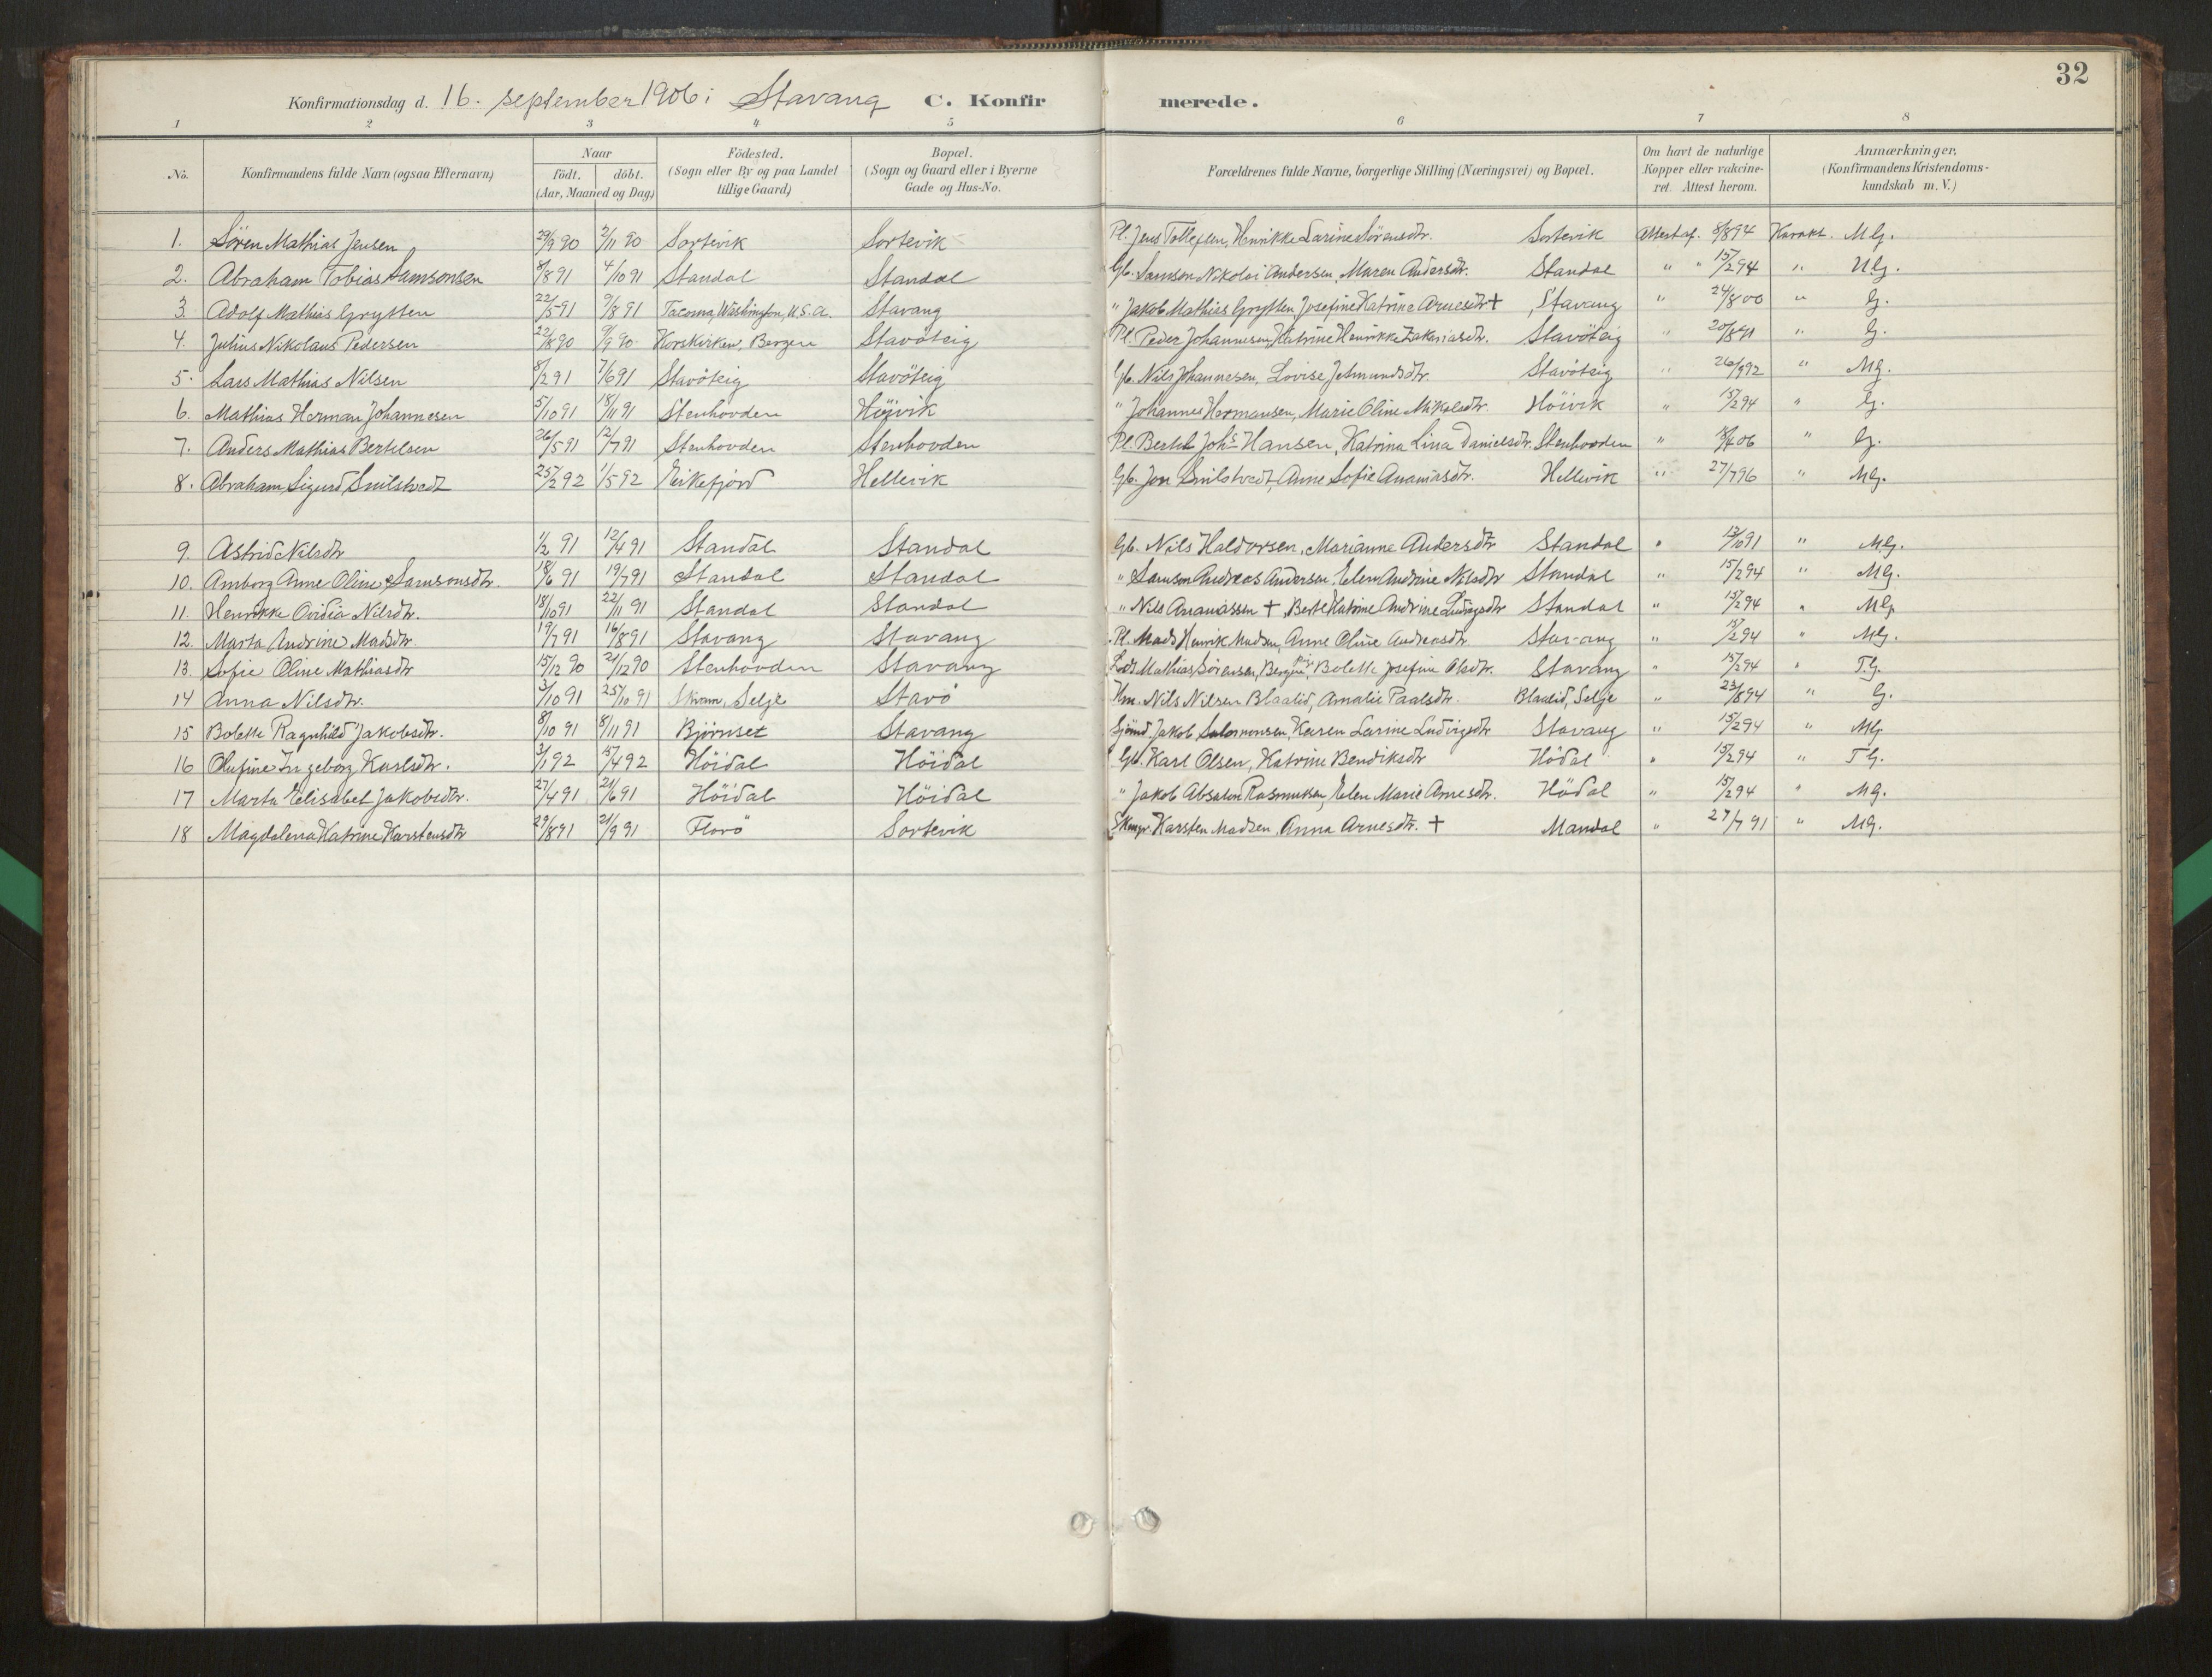 32
Konfirmationsdag d. 16. september 1906 i Stavang C. Konfirmerede.
1 2 3 4 5 6 7 8
No. Konfirmandens fulde Navn (ogsaa Efternavn) Naar født. døbt. (Aar, Maaned og Dag) Fødested. (Sogn eller By og paa Landet tillige Gaard) Bopæl. (Sogn og Gaard eller i Byerne Gade og Hus-No. Forældrenes fulde Navne, borgerlige Stilling (Næringsvei) og Bopæl. Om havt de naturlige Kopper eller vakcineret. Attest herom. Anmærkninger, (Konfirmandens Kristendomskundskab m. V.)
1. Sören Mathias Jensen 29/9 90 2/11 90 Sortevik Sortevik Pl. Jens Tollefsen, Henrikke Larine Sörensdtr. Sortevik Attest af. 8/8 94 Karakt. Mg.
2. Abraham Tobias Samsonsen 8/8 91 4/10 91 Standal Standal Gb. Samson Nikolai Andersen, Maren Andersdtr. Standal " " 15/2 94 " Ug.
3. Adolf Mathias Grytten 22/5 91 9/8 91 Tacoma, Washington, U.S.A. Stavang " Jakob Mathias Grytten, Josefine Katrine Arnesdtr +, Stavang " 24/8 00 " G.
4. Julius Nikolaus Pedersen 22/8 90 9/9 90 Korskirken, Bergen Stavöteig Pl. Peder Johannesen, Katrine Henrikke Zakariasdtr. Stavöteig " 20/8 91 " G.
5. Lars Mathias Nilsen 8/2 91 7/6 91 Stavöteig Stavöteig Gb. Nils Johannesen, Lovise Jetmundsdtr. Stavöteig " 26/9 92 " Mg.
6. Mathias Herman Johannesen 5/10 91 18/11 91 Stenhovden Höivik " Johannes Hermansen, Marie Oline Mikalsdtr. Höivik " 15/2 94 " G.
7. Anders Mathias Bertelsen 26/5 91 12/7 91 Stenhovden Stenhovden Pl. Bertel Johs Hansen, Katrina Lina Danielsdtr. Stenhovden " 06 " G.
8. Abraham Sigurd Smilstvedt 25/2 92 1/5 92 Eikefjord Hellevik Gb. Jon Smilstvedt, Anne Sofie Ananiasdtr. Hellevik " 27/7 96 " Mg.
9. Astrid Nilsdtr 1/2 91 12/4 91 Standal Standal Gb. Nils Haldorsen, Marianne Andersdtr Standal " 12/10 91 " Mg.
10. Amborg Anne Oline Samsonsdtr. 18/6 91 19/7 91 Standal Standal " Samson Andreas Andersen, Elen Andrine Nilsdtr Standal " 15/2 94 " Mg.
11. Henrikke Ovidia Nilsdtr. 18/10 91 22/11 91 Standal Standal " Nils Ananiassen +, Berte Katrine Andrine Ludvigsdtr Standal " 15/2 94 " Mg
12. Marta Andrine Madsdtr. 19/7 91 16/8 91 Stavang Stavang Pl. Mads Henrik Madsen, Anne Oline Andreasdtr Stavang " 15/2 94 " Mg.
13. Sofie Oline Mathiasdtr 15/12 90 21/12 90 Stenhovden Stavang Lods Mathias Sörensen, Bergen, Bolette Josefine Olsdtr. Stavang " 15/2 94 " Tg.
14 Anna Nilsdtr. 3/10 91 25/10 91 Skram, Selje Stavö Hm. Nils Nilsen Blaalid, Amalie Paalsdtr. Blaalid, Selje " 23/8 94 " G.
15 Bolette Ragnhild Jakobsdtr. 8/10 91 8/11 91 Björnset Stavang Sjömd. Jakob Salomonsen, Karen Larine Ludvigsdtr Stavang " 15/2 94 " Mg
16 Olufine Ingeborg Karlsdtr. 3/1 92 15/4 92 Höidal Höidal Gb. Karl Olsen, Katrine Bendiksdtr Hödal " 15/2 94 " Tg.
17 Marta Elisabet Jakobsdtr. 27/4 91 21/6 91 Höidal Höidal " Jakob Absalon Rasmusen, Elen Marie Arnesdtr. Hödal " 15/2 94 " Mg.
18 Magdalena Katrine Karstensdtr 29/8 91 21/9 91 Florö Sortevik Karsten Madsen, Anna Arnesdtr. + Mandal " 27/7 91 " Mg.